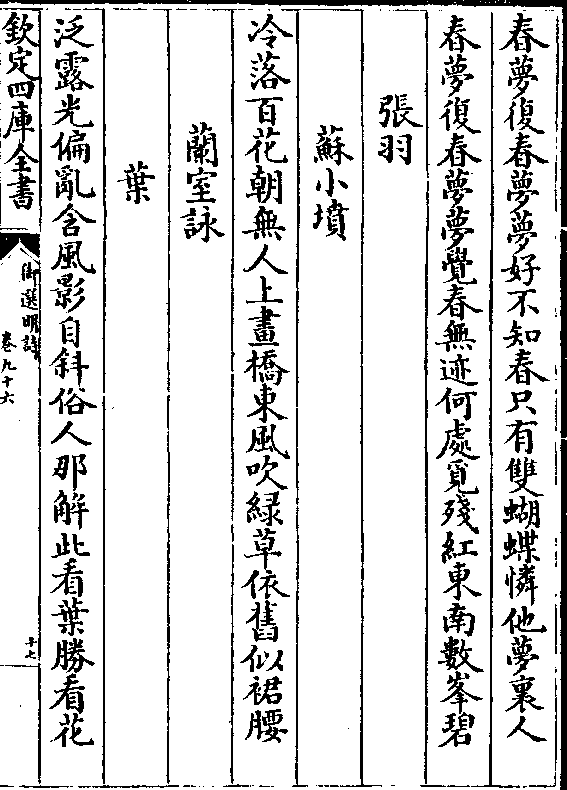 春夢復春夢夢好不知春只有雙蝴蝶憐他夢裏人
春夢復春夢夢覺春無迹何處覓殘紅東南數峯碧
張羽
蘇小墳
冷落百花朝無人上畫橋東風吹緑草依舊似裙腰
蘭室詠
葉
泛露光偏亂含風影自斜俗人那解此看葉勝看花
欽定四庫全書
御選明詩
卷九十六
十七